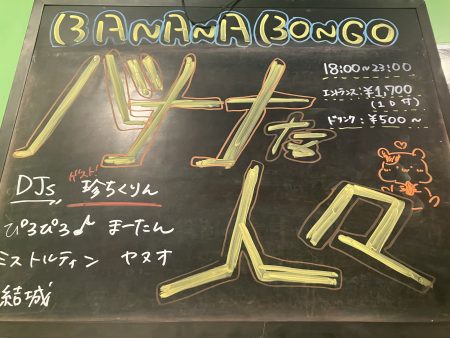 BANANA BONGO
バナナな人々
18:00〜23:00
エントランス:¥1,700
(1D付)
ドリンク:¥500〜
DJs
ゲスト!
珍ちくりん
ぴろぴろ♪ まーたん
ミストルティン ヤヌオ
結城